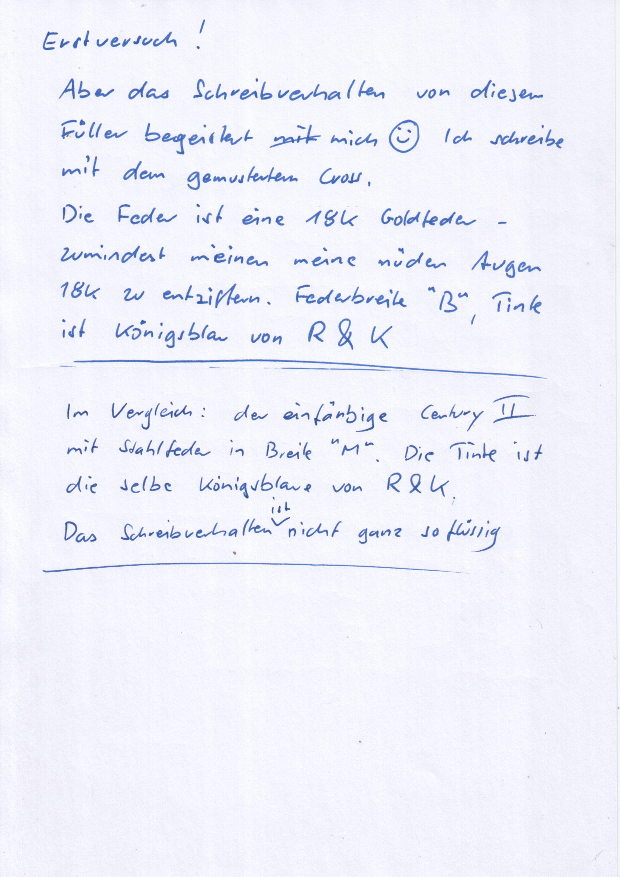 Erstversuch!
Aber das Schreibverhalten von diesem
Füller begeistert mit mich ☺ Ich schreibe
mit dem gemusterten Cross.
Die Feder ist eine 18K Goldfeder -
zumindest meinen meine müden Augen
18K zu entziffern. Federbreite "B", Tinte
ist Königsblau von R & K
Im Vergleich: der einfarbige Century II
mit Stahlfeder in Breite "M". Die Tinte ist
die selbe Königsblaue von R & K.
Das Schreibverhalten ist nicht ganz so flüssig